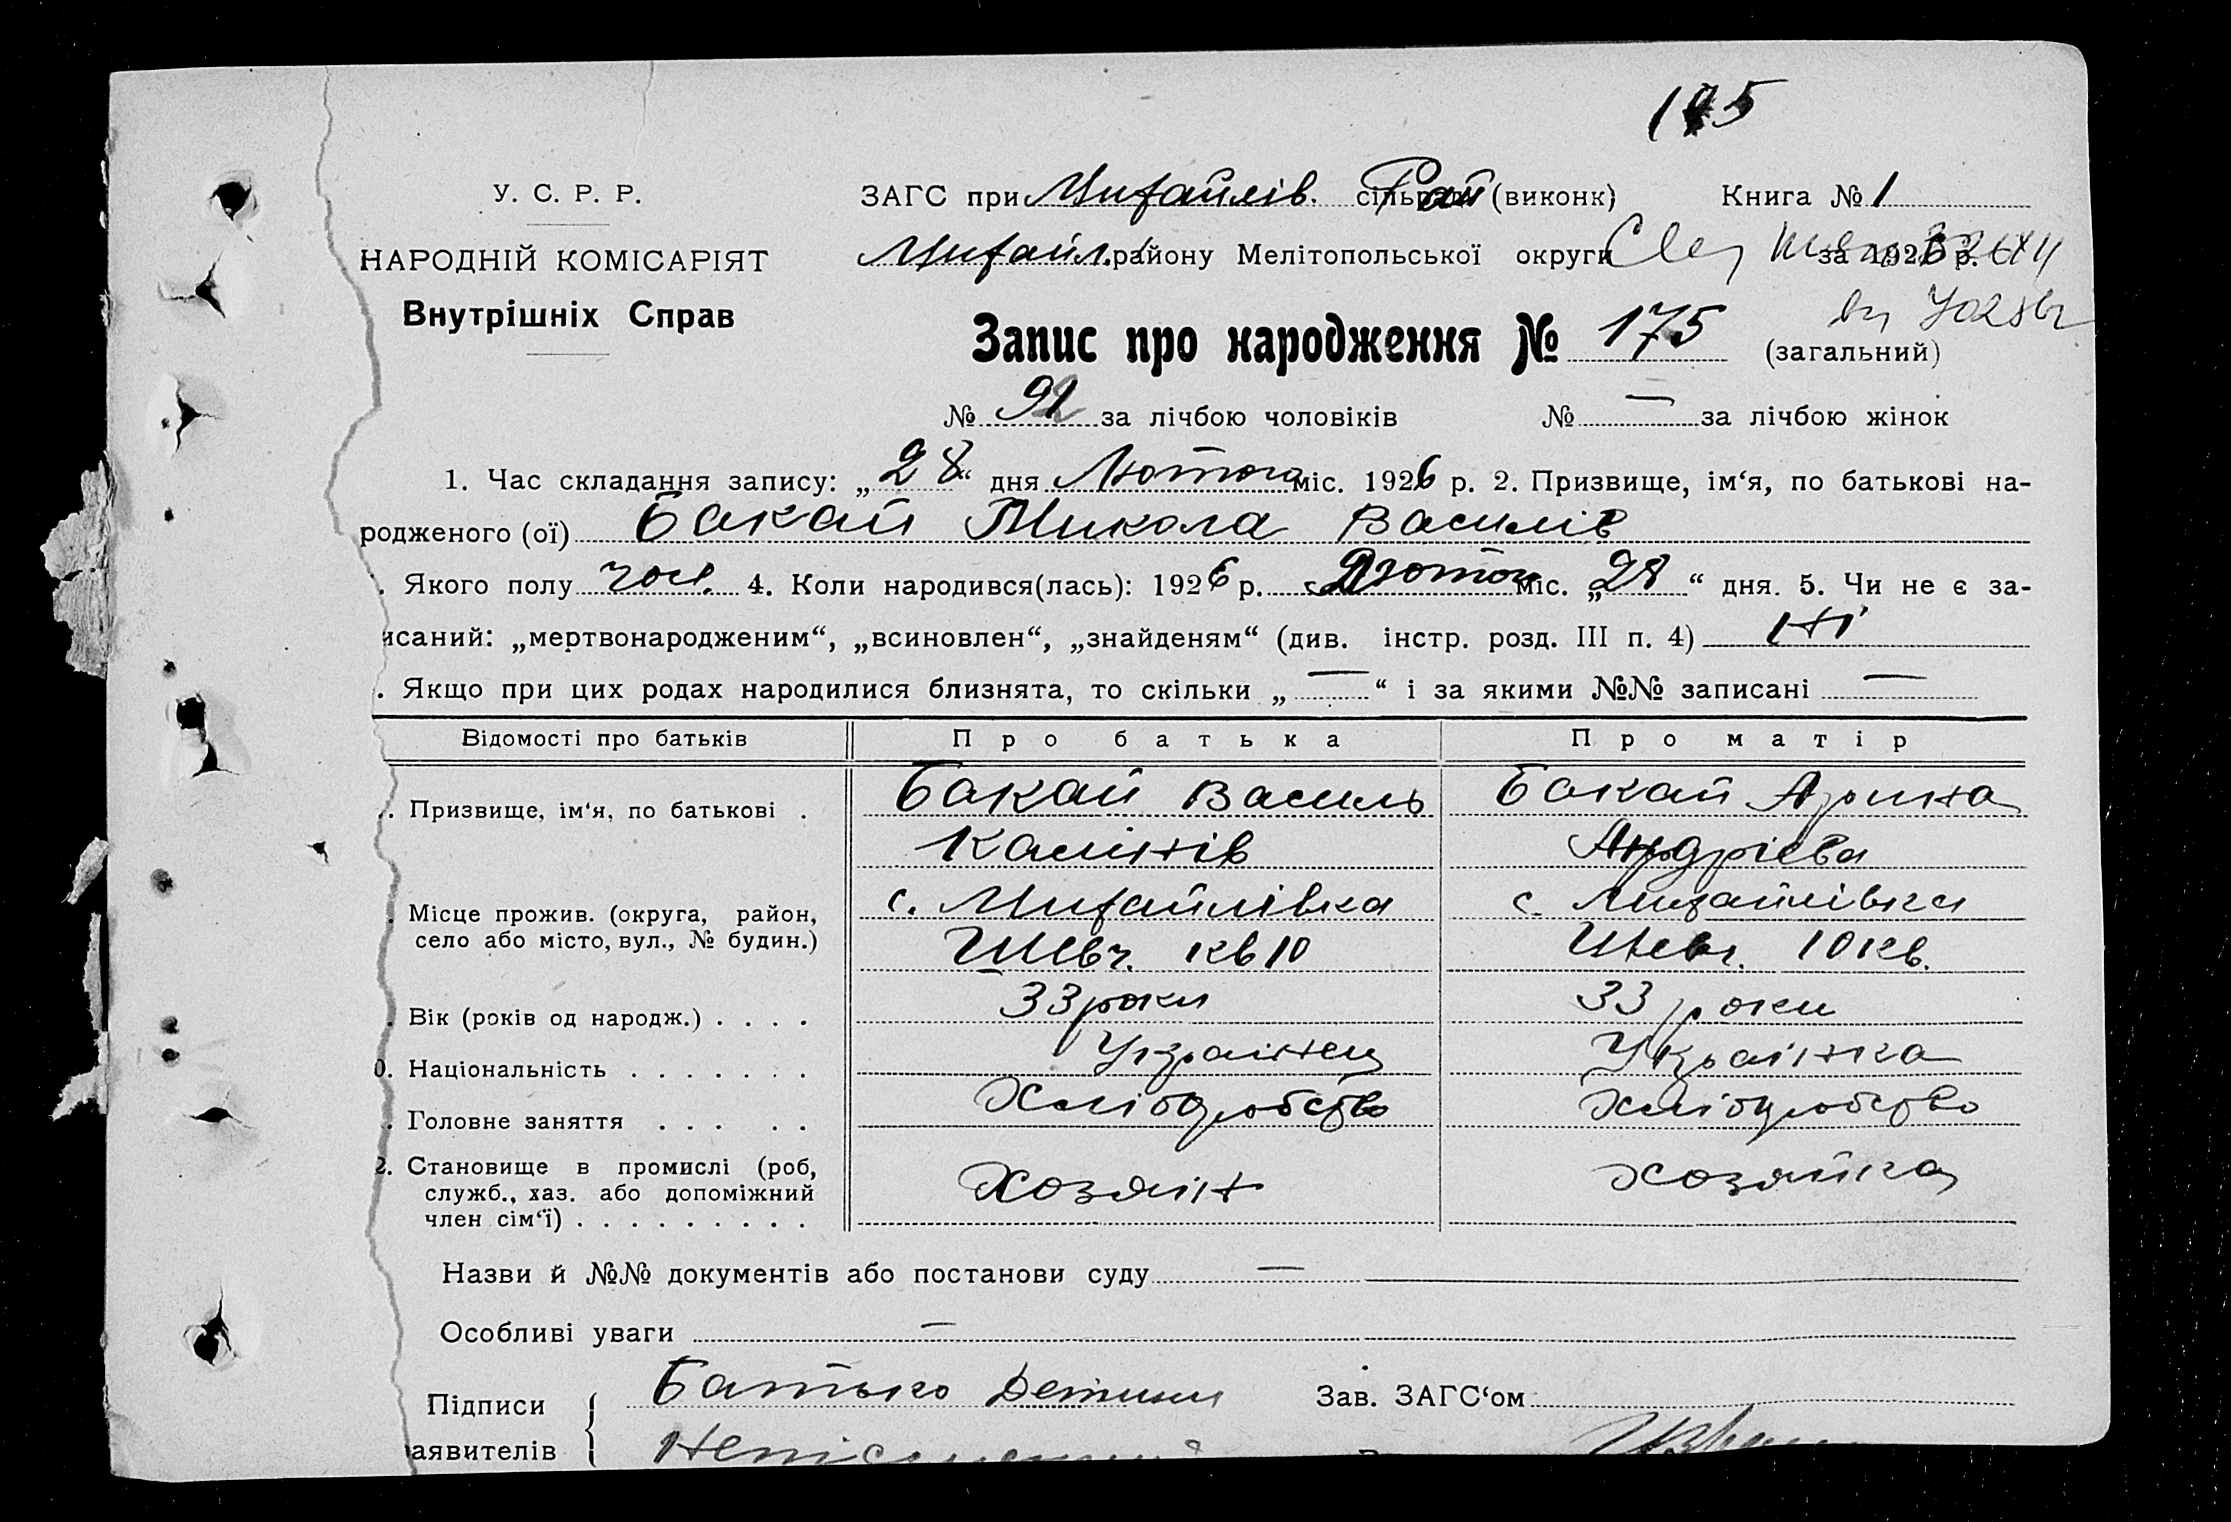 175
У. С. Р. Р.
ЗАГС при Михайлів. сільради Рай (виконк) Книга № 1
НАРОДНІЙ КОМІСАРІЯТ
Михайл. району Мелітопольської округи за 1926 р.
Внутрішніх Справ
Запис про народження № 175 (загальний)
№ 91 за лічбою чоловіків № — за лічбою жінок
1. Час складання запису: „28“ дня Лютого міс. 1926 р. 2. Призвище, ім‘я, по батькові на-
родженого (ої) Бакай Микола Василів
. Якого полу чол. 4. Коли народився(лась): 1926 р. Лютого міс. „28“ дня. 5. Чи не є за-
исаний: „мертвонародженим“, „всиновлен“, „знайденям“ (див. інстр. розд. III п. 4) Ні
. Якщо при цих родах народилися близнята, то скільки „—“ і за якими №№ записані —
Відомості про батьків Про батька Про матір
. Призвище, ім‘я, по батькові . Бакай Василь Бакай Арина
Калінів Андрієва
. Місце прожив. (округа, район, с. Михайлівка с. Михайлівка
село або місто, вул., № будин.) Шевч. кв 10 Шевч. 10 кв.
. Вік (років од народж.) . . . . 33 роки 33 роки
0. Національність . . . . . . . Українец Українка
. Головне заняття . . . . . Хліборобство Хліборобство
2. Становище в промислі (роб, Хозяїн Хозяйка
служб., хаз. або допоміжний
член сім‘ї) . . . . . . . . .
Назви й №№ документів або постанови суду —
Особливі уваги —
Підписи Батько Детини Зав. ЗАГС‘ом
аявителів